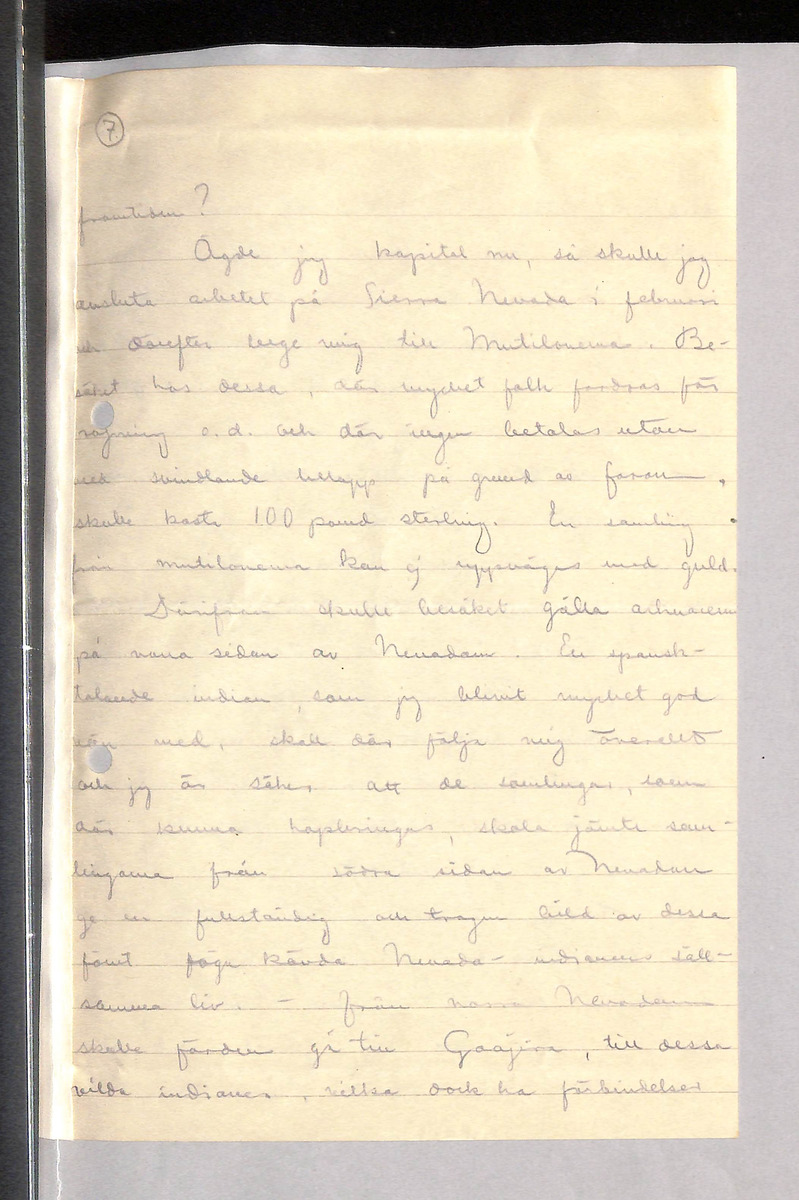 7.
framtiden?
Ägde jag kapital nu, så skulle jag
avsluta arbetet på Sierra Nevada i februari
och därefter bege mig till Mutilonerna. Be-
söket hos dessa, där mycket folk fordras för
röjning o.d. och där ingen betalas utan
med svindlande belopp på grund av faran,
skulle kosta 100 pound sterling. En samling
från mutilonerna kan ej uppvägas med guld.
Därifrån skulle besöket gälla arhuacerna
på norra sidan av Nevadan. En spansk-
talande indian, som jag blivit mycket god
vän med, skall där följa mig överallt
och jag är säker att de samlingar, som
där kunna hopbringas, skola jämte sam-
lingarna från södra sidan av Nevadan
ge en fullständig och trogen bild av dessa
förut föga kända Nevada-indianers säll-
samma liv. - Från norra Nevadan
skulle färden gå till Goajira, till dessa
vilda indianer, vilka dock ha förbindelser